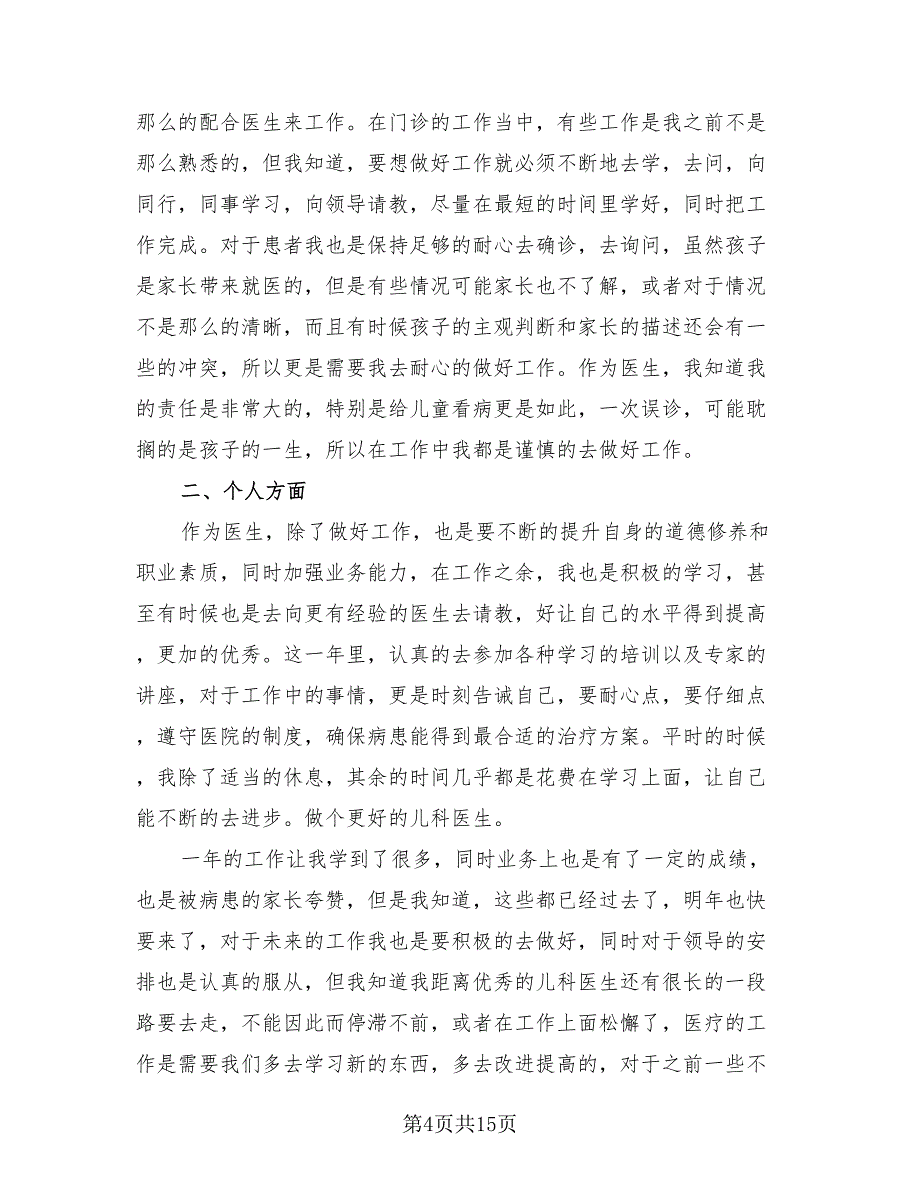 那么的配合医生来工作。在门诊的工作当中，有些工作是我之前不是
那么熟悉的，但我知道，要想做好工作就必须不断地去学，去问，向
同行，同事学习，向领导请教，尽量在最短的时间里学好，同时把工
作完成。对于患者我也是保持足够的耐心去确诊，去询问，虽然孩子
是家长带来就医的，但是有些情况可能家长也不了解，或者对于情况
不是那么的清晰，而且有时候孩子的主观判断和家长的描述还会有一
些的冲突，所以更是需要我去耐心的做好工作。作为医生，我知道我
的责任是非常大的，特别是给儿童看病更是如此，一次误诊，可能耽
搁的是孩子的一生，所以在工作中我都是谨慎的去做好工作。
二、个人方面
作为医生，除了做好工作，也是要不断的提升自身的道德修养和
职业素质，同时加强业务能力，在工作之余，我也是积极的学习，甚
至有时候也是去向更有经验的医生去请教，好让自己的水平得到提高
，更加的优秀。这一年里，认真的去参加各种学习的培训以及专家的
讲座，对于工作中的事情，更是时刻告诫自己，要耐心点，要仔细点
，遵守医院的制度，确保病患能得到最合适的治疗方案。平时的时候
，我除了适当的休息，其余的时间几乎都是花费在学习上面，让自己
能不断的去进步。做个更好的儿科医生。
一年的工作让我学到了很多，同时业务上也是有了一定的成绩，
也是被病患的家长夸赞，但是我知道，这些都已经过去了，明年也快
要来了，对于未来的工作我也是要积极的去做好，同时对于领导的安
排也是认真的服从，但我知道我距离优秀的儿科医生还有很长的一段
路要去走，不能因此而停滞不前，或者在工作上面松懈了，医疗的工
作是需要我们多去学习新的东西，多去改进提高的，对于之前一些不
第4页共15页